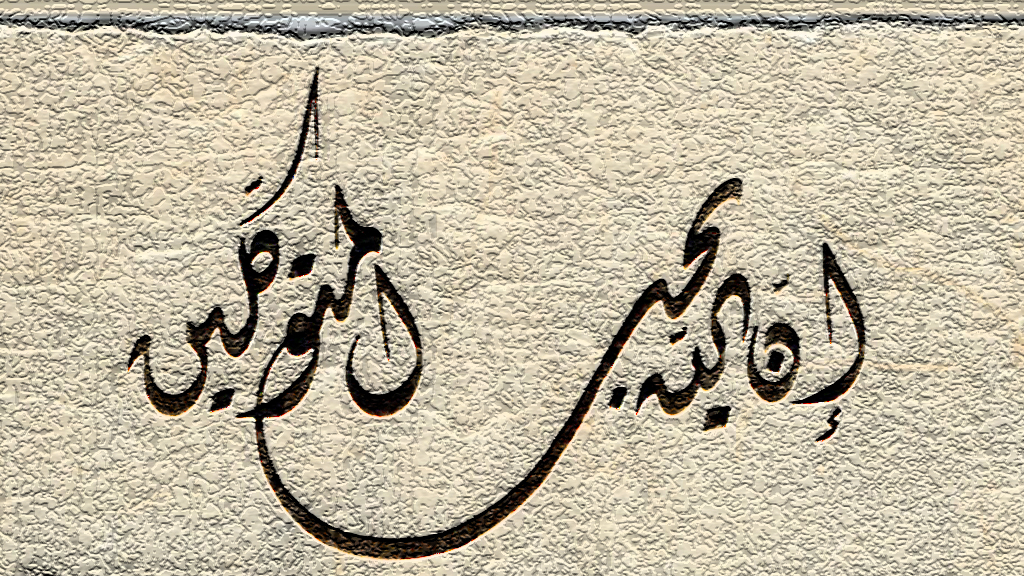 إن الله يحب المتوكلين